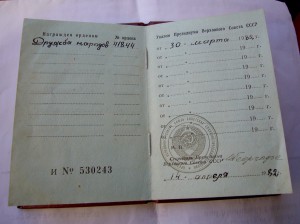 Награжден орденом
№ ордена
Дружбы народов
41844
И № 530243
Указом Президиума Верховного Совета СССР
от „30“ марта 1982 г.
от „ “ 19 г.
от „ “ 19 г.
от „ “ 19 г.
от „ “ 19 г.
от „ “ 19 г.
от „ “ 19 г.
Секретарь Президиума
Верховного Совета СССР
„14“ апреля 1982 г.